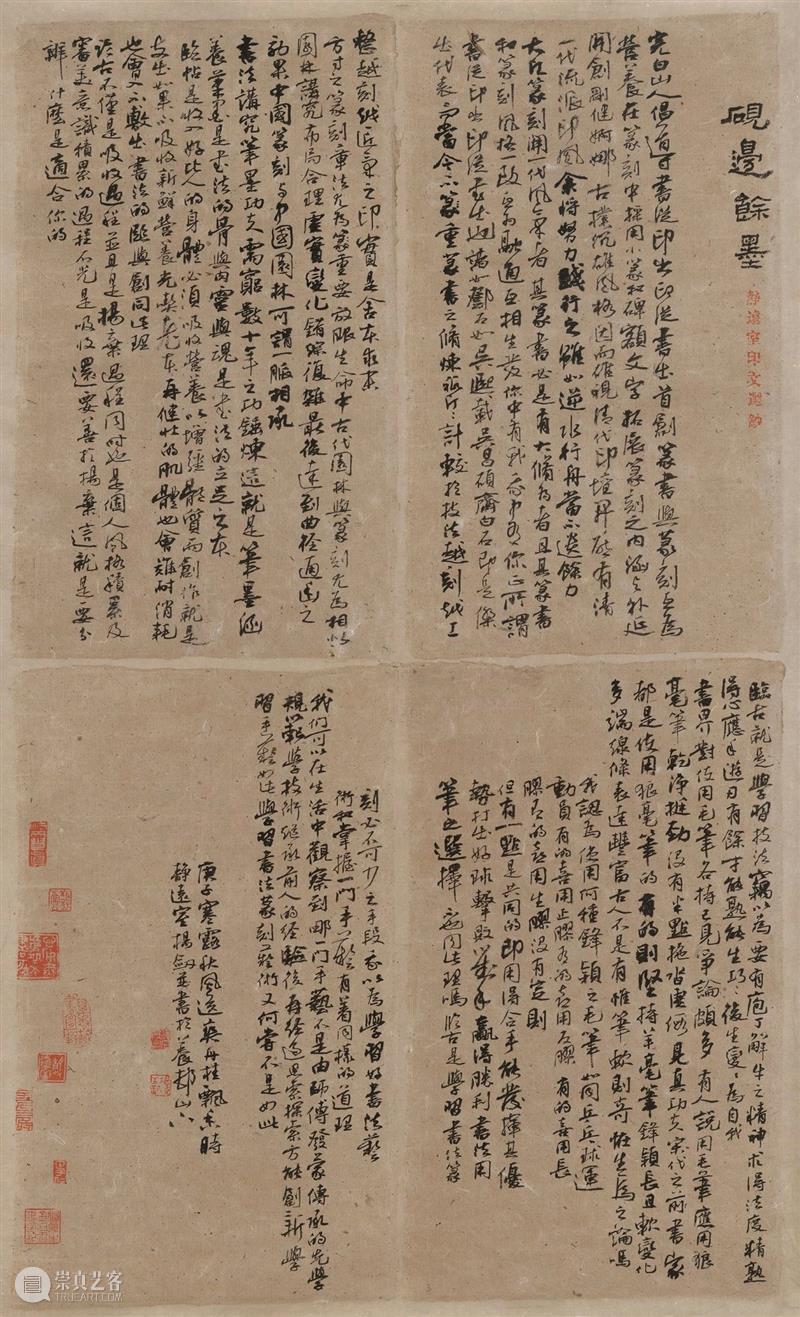 硯邊餘墨
完白山人倡導書從印出印從書出首創篆書與篆刻互為
營養在篆刻中採用小篆和碑額文字拓展篆刻之內涵與外延
開創剛健婀娜古樸沉雄風格因而雄視清代印壇
一代流派印風余將努力踐行之雖如逆水行舟當不遺餘力
大凡篆刻開一代風氣者其篆書必是有大修為者且其篆書
和篆刻風格一致氣息融通互相生發你中有我我中有你正所謂
書從印出印從書出迴諸如鄧石如吳熙載吳昌碩齊白石即是傑
出代表而當今不篆重篆書之修煉祇斤斤計較於技法越刻越工
整越刻越匠氣之印實是舍本求末
方寸之篆刻章法尤為重要放眼生命中古代園林與篆刻尤為相似
園林講究布局合理虛實變化錯綜復雜最後達到曲徑通幽之
効果中國篆刻與中國園林可謂一脈相承
書法講究筆墨功夫需窮數十年之功錘煉這就是筆墨涵
養筆墨是書法的骨與肉靈與魂是書法的立足之本
臨帖是收入好比人的身體必須吸收營養以增強體質而創作就是
支出如果不吸收新鮮營養光契老本再健壯的肌體也會難耐消耗
也會入不敷出書法的臨與創同此理
臨古不僅是吸收過程並且是揚棄過程同時也是個人風格積累及
審美意識積累的過程不光是吸收還要善於揚棄這就是要分
辨什麼是適合你的
臨古就是學習技法竊以為要有庖丁解牛之精神求得法度精熟
得心應手遊刃有餘才能熟能生巧巧後生變變為自我
書界對使用毛筆各持己見爭論頗多有人說用毛筆應用狼
毫筆乾淨挺勁沒有半點拖沓虛假見真功夫宋代之前書家
都是使用狼毫筆的有的則堅持羊毫筆鋒穎長且軟變化
多端線條表達豐富古人不是有惟筆軟則奇怪生焉之論嗎
我認為使用何種鋒穎之毛筆如同乒乓球運
動員有的喜用正膠有的喜用反膠有的喜用長
膠有的喜用生膠沒有定則
但有一點是共同的即用得合手能發揮其優
勢打出好球擊敗對手贏得勝利書法用
筆之選擇亦同此理嗎臨古是學習書法篆
刻必不可少之手段我以為學習好書法藝
術和掌握一門手藝有著同樣的道理
我們可以在生活中觀察到哪一門手藝不是由師傅發蒙傳承的先學
規範學技術繼承前人的經驗後再經過思索探索方能創新學
習手藝如此學習書法篆刻藝術又何嘗不是如此
庚子寒露秋風送爽丹桂飄香時
靜遠室楊劍書於養邨山下
崇真艺客
TRUEART.COM